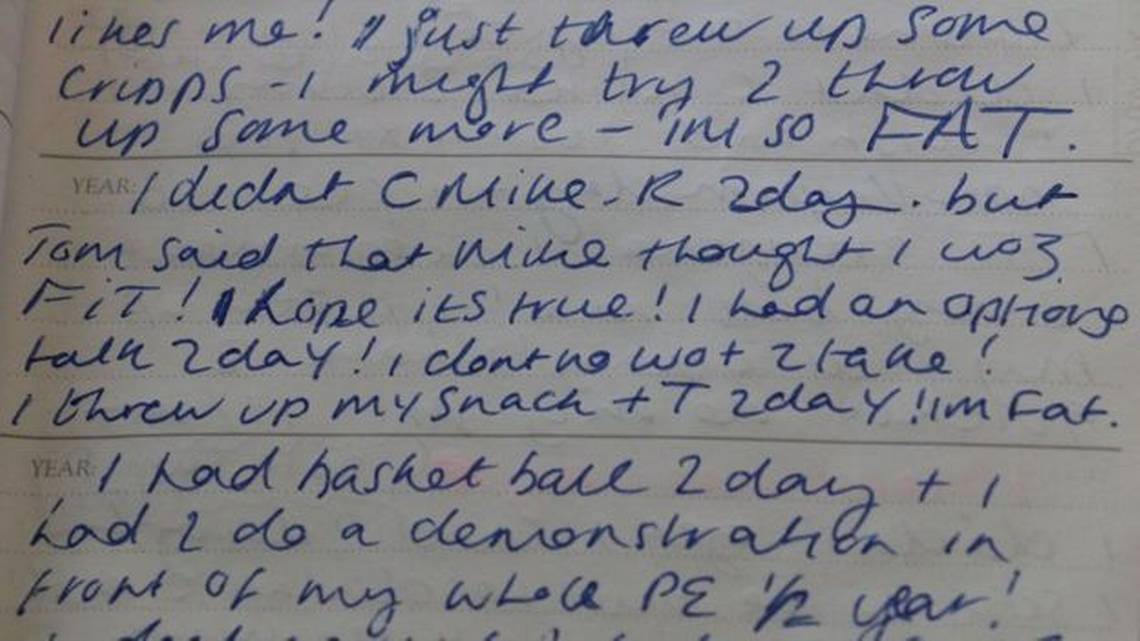 likes me! I just threw up some
cripps - I might try 2 throw
up some more - im so FAT.
YEAR: I didnt C Mike-R 2day. but
Tom said that Mike thought I woz
FiT! I hope its true! I had an options
talk 2day! I dont no wot 2 take!
I threw up my snack + T 2day! im Fat.
YEAR: I had basket ball 2day + I
had 2 do a demonstration in
front of my whole PE 1/2 year!